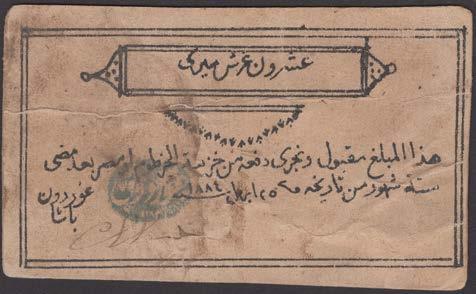 عشرون غرش ميرى
هذا المبلغ مقبول وتجرى دفعه من خزينة الخرطوم او مصر بعد مضى
ستة شهور من تاريخه ٢٥ ابريل سنة ١٨٨٤
غوردون
باشا